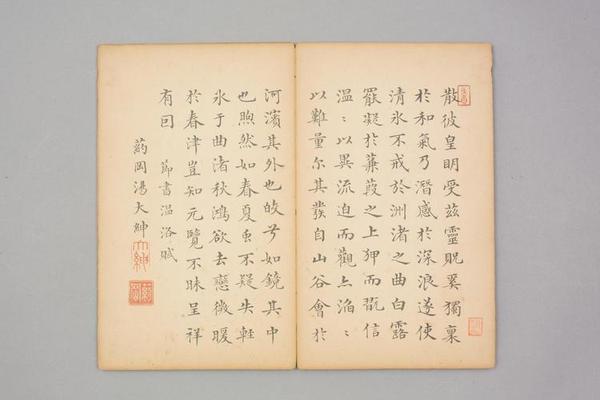 散彼皇明受茲靈貺奚獨稟
於和氣乃潛感於深浪遂使
清氷不戒於洲渚之曲白露
罷凝於蒹葭之上狎而翫信
溫﹕以異流迫而觀亦淪﹕
以難量尔其發自山谷會於
河濱其外也皎兮如鏡其中
也煦然如春夏虫不疑失輕
氷于曲渚秋鴻欲去戀微暖
於春津豈知元覽不昧呈祥
有回 節書溫洛賦
藥岡湯大紳